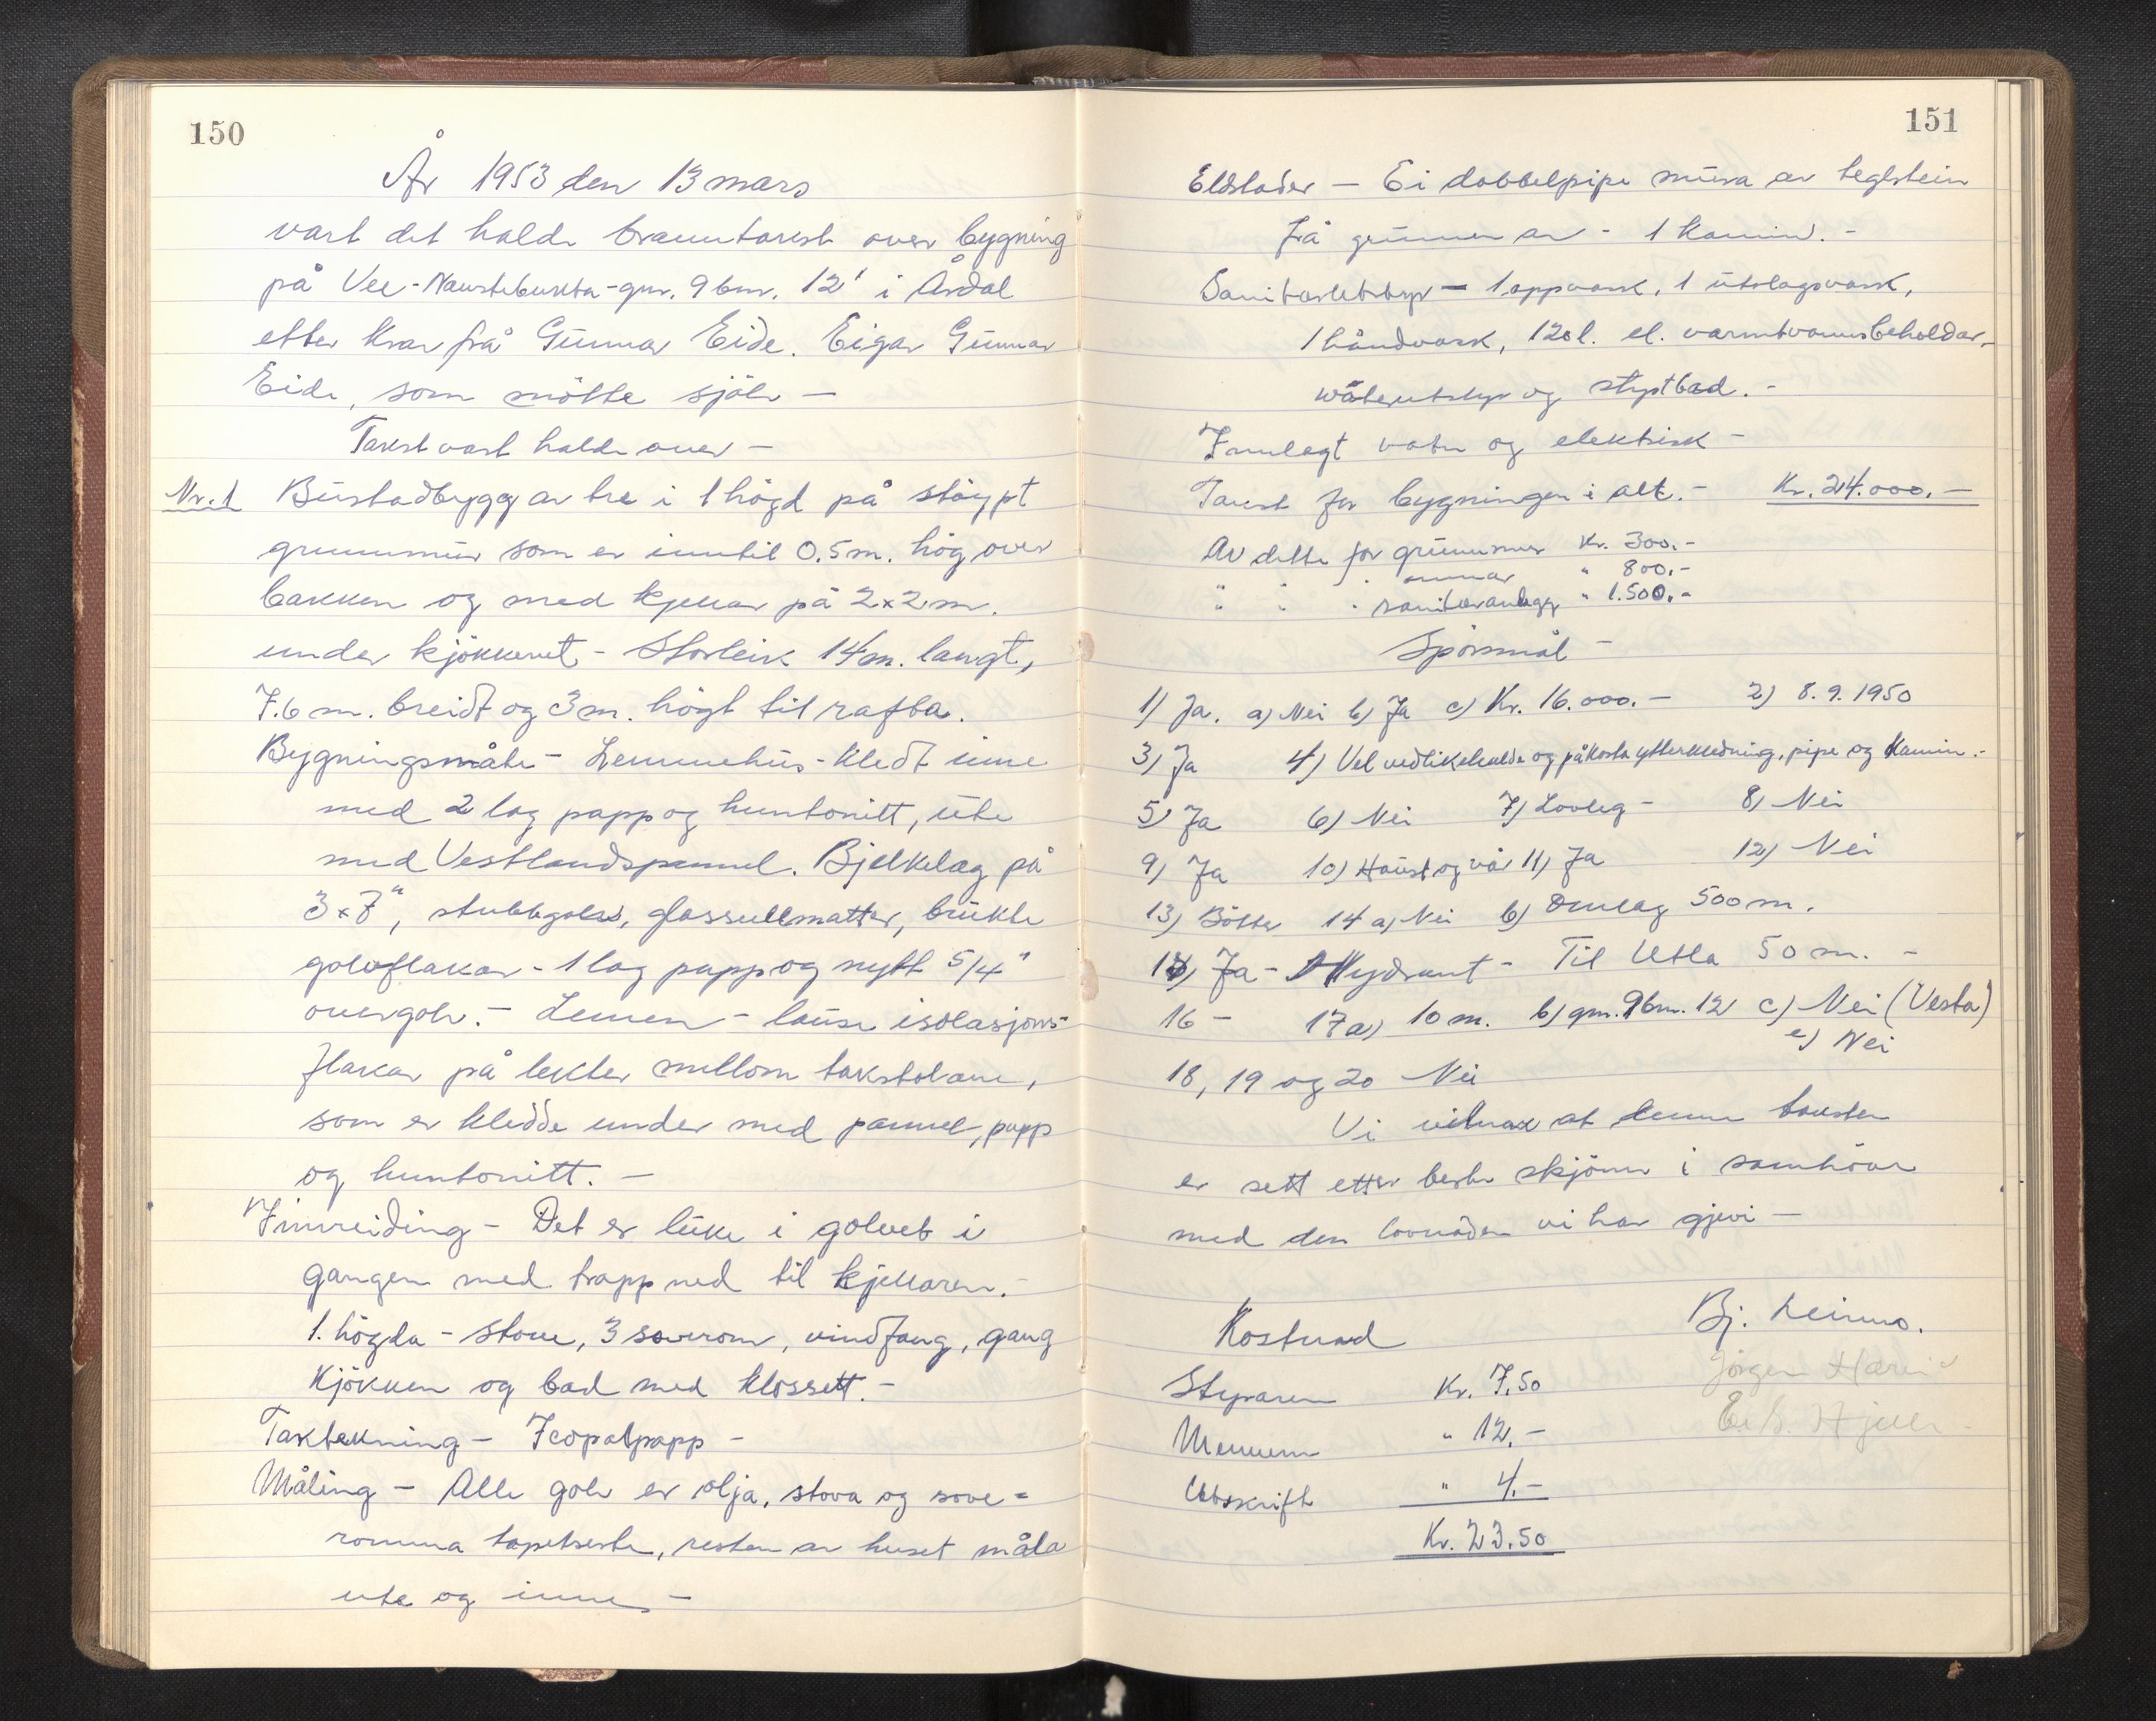 150
År 1953 den 13 mars
vart det halde branntakst over bygning
på Vee-Naustebukta-gnr. 9 bnr. 12' i Årdal
etter krav frå Gunnar Eide. Eigar Gunnar
Eide, som mötte sjölv —
Takst vart halde over —
Nr. 1 Bustadbygg av tre i 1 högd på stöypt
grunnmur som er inntil 0.5 m. hög over
bakken og med kjellar på 2x2 m.
under kjökkenet - Storleik 14 m. langt,
7.6 m. breidt og 3 m. högt til rafta.
Bygningsmåte - Lemmehus - kledt inne
med 2 lag papp og huntonitt, ute
med Vestlandspannel. Bjelkelag på
3x7", stubbgolv, glassullmatter, brukte
golvflakar - 1 lag papp og nytt 5/4"
overgolv. - Lemen - lause isolasjons-
flakar på lekter mellom takstolane,
som er kledde under med pannel, papp
og huntonitt. —
Innreiding - Det er luke i golvet i
gangen med trapp ned til kjellaren. -
1. högda - stove, 3 soverom, vindfang, gang
Kjökken og bad med klossett. -
Taktekning - Icopalpapp -
Måling - Alle golv er olja, stova og sove-
romma tapetserte, resten av huset måla
ute og inne -
151
Eldstader - Ei dobbelpipe mura av teglstein
frå grunnen av - 1 kamin. -
Sanitærutstyr - 1 oppvask, 1 utslagsvask,
1 håndvask, 120 l. el. varmtvannsbeholdar,
wåterutstyr og styrtbad. -
Innlagt vatn og elektrisk -
Takst for bygningen i alt. - Kr. 24.000.-
Av dette for grunnmur Kr. 300.-
" " " ommar " 800.-
" " " sanitæranlegg " 1.500.-
Spörsmål -
1) Ja. a) Nei b) Ja c) Kr. 16.000.- 2) 8.9.1950
3) Ja 4) Vel vedlikehalde og påkosta ytterkledning, pipe og kamin. -
5) Ja 6) Nei 7) Lovleg - 8) Nei
9) Ja 10) Haust og vår 11) Ja 12) Nei
13) Bötter 14 a) Nei b) Omlag 500 m.
15) Ja - Hydrant - Til Utla 50 m. -
16 - 17 a) 10 m. b) gnr. 9 bnr. 12 c) Nei (Vesta)
e) Nei
18, 19 og 20 Nei
Vi vitnar at denne taksten
er sett etter beste skjönn i samhöve
med den lovnaden vi har gjevi -
Kostnad Bj. Leirmo.
Styraren Kr. 7.50 Jörgen Hæreid
Mennene " 12.- Hjelle
Utskrift " 4.-
Kr. 23.50